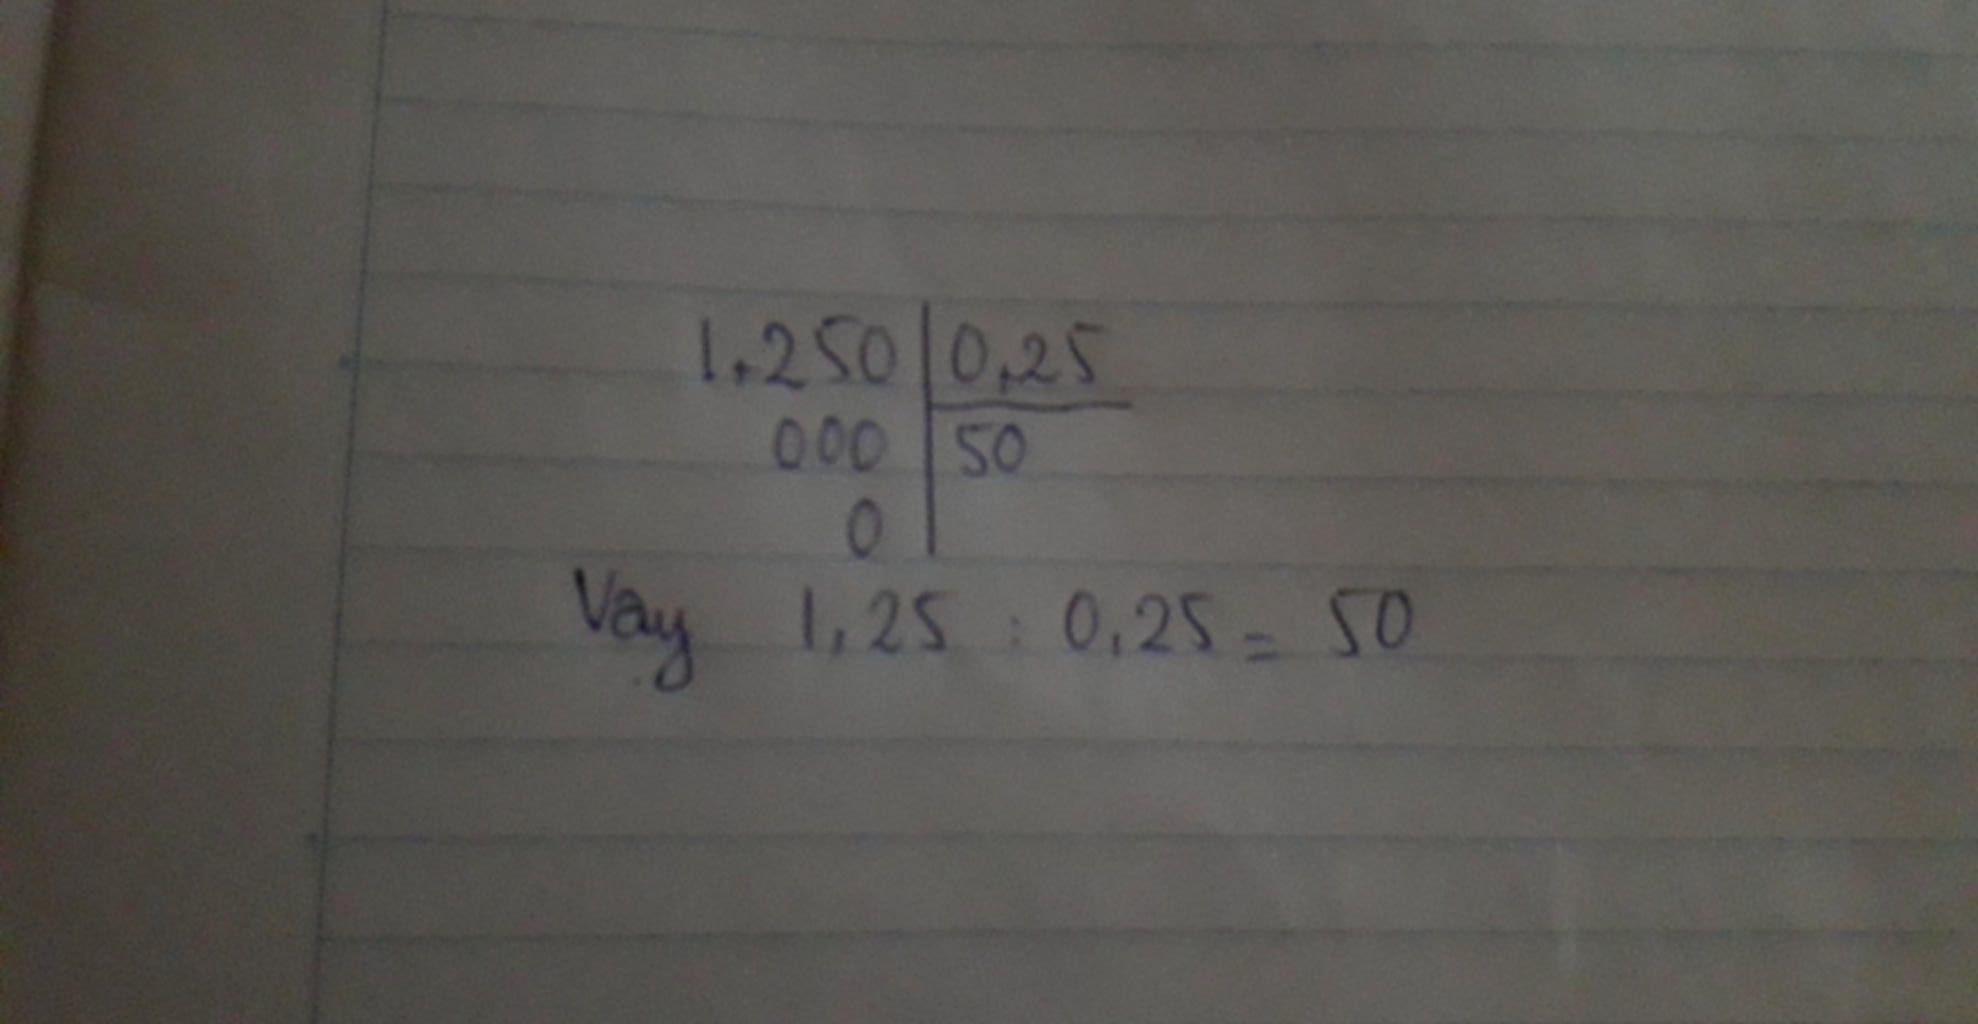 1,250 | 0,25
000 | 50
0
Vậy 1,25 : 0,25 = 50